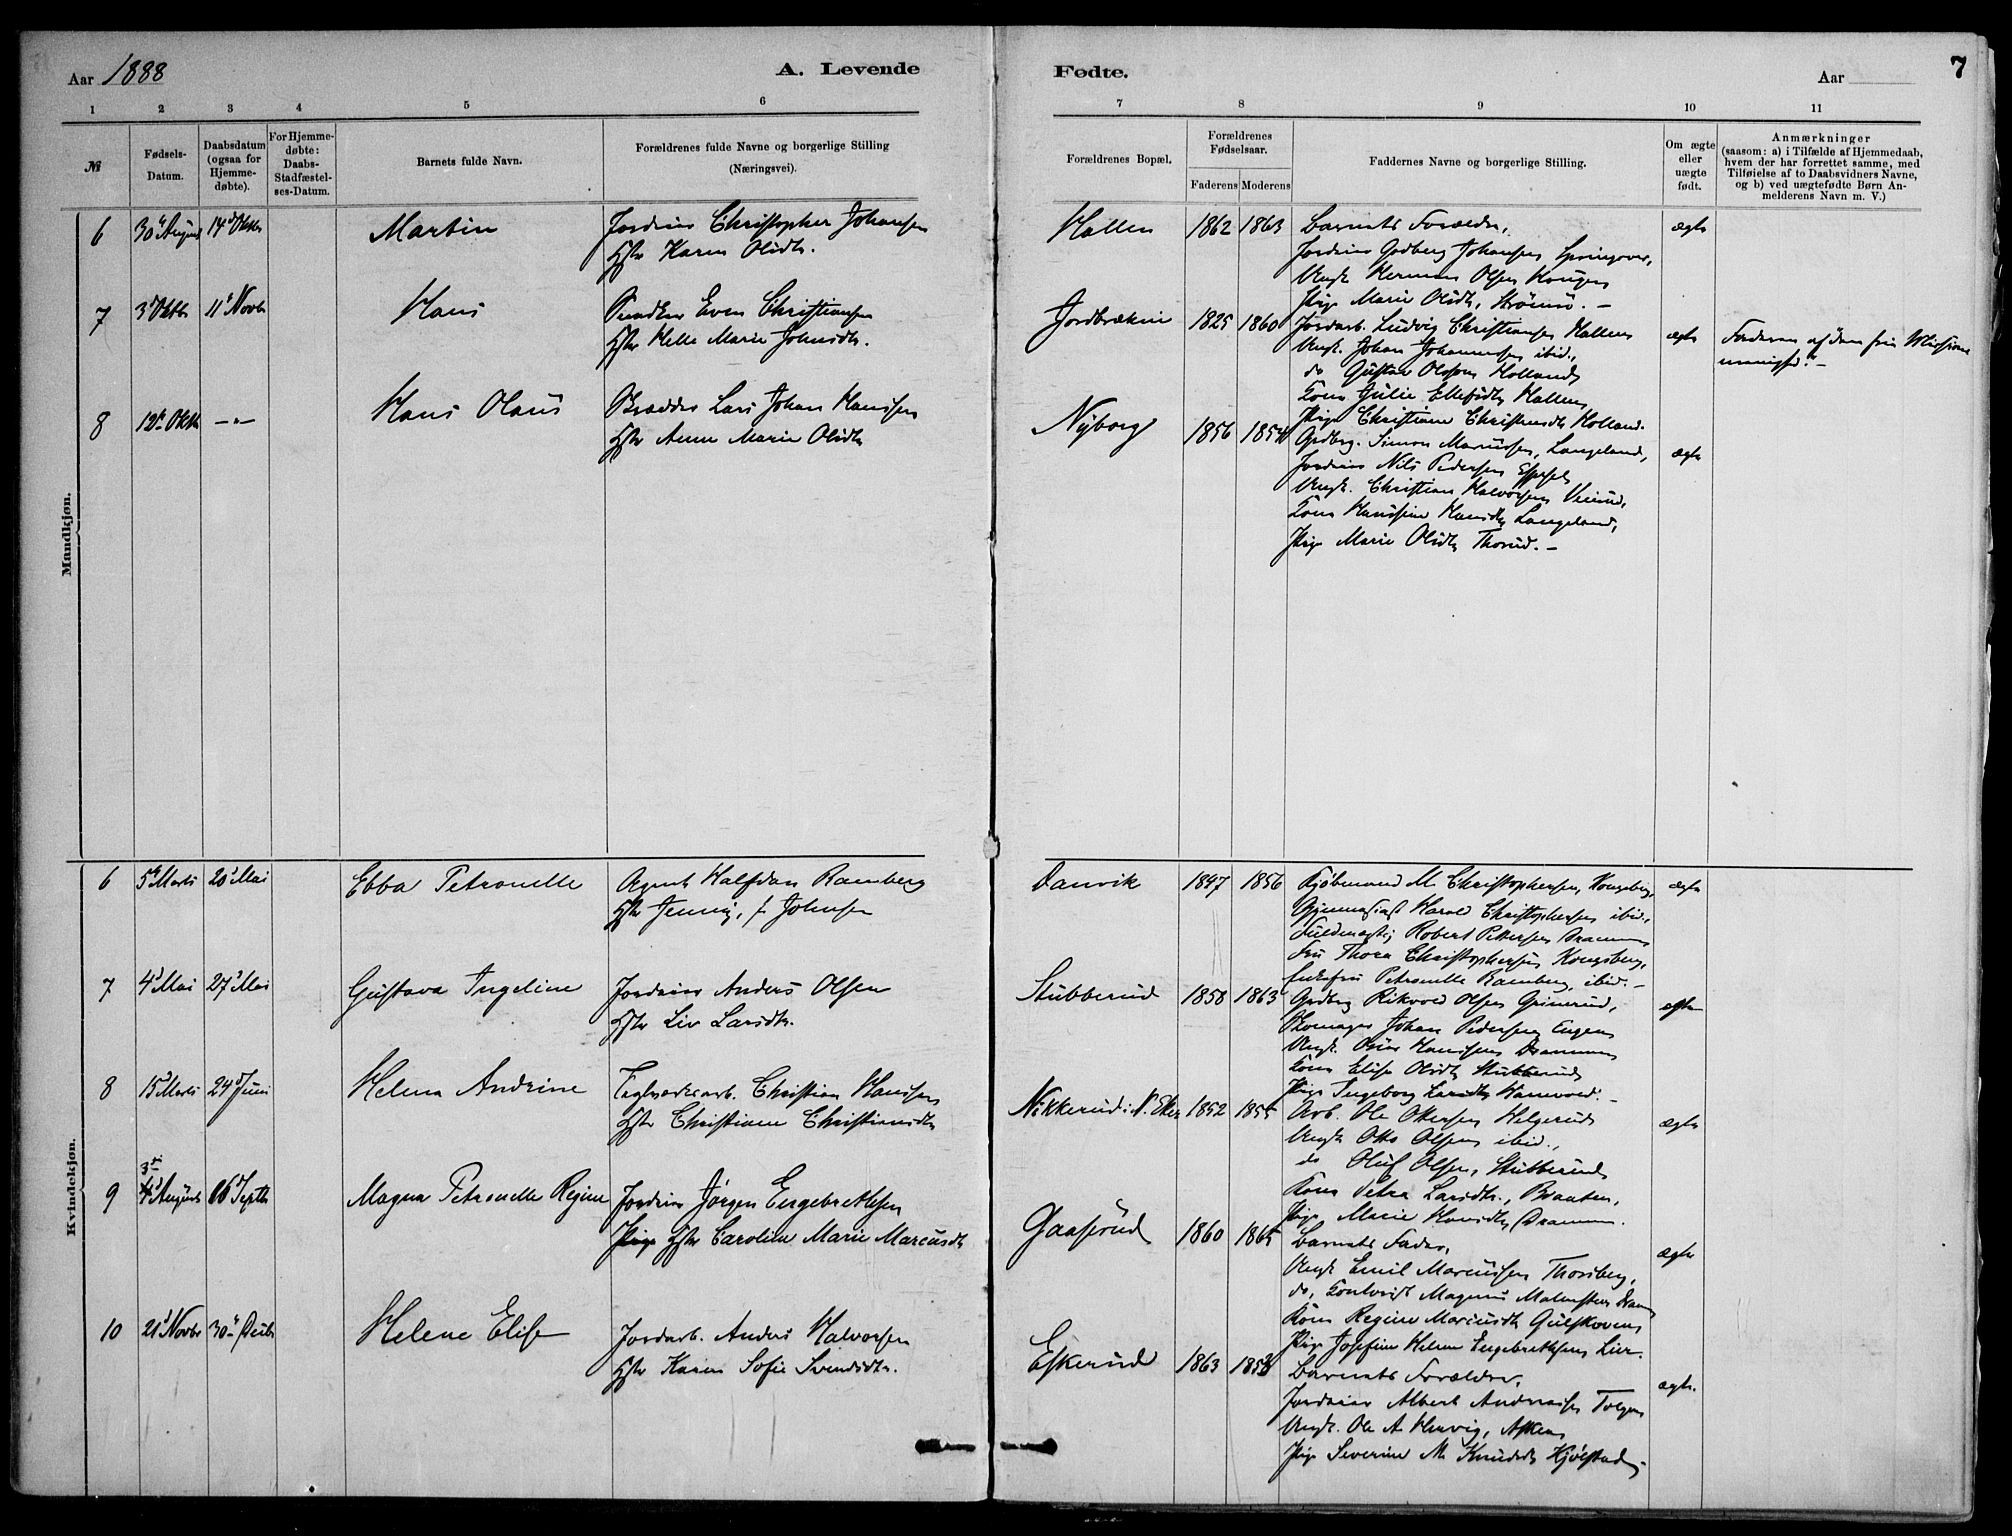 Aar 1888
A. Levende
Fødte.
Aar
7
1 2 3 4 5 6 7 8 9 10 11
№
Fødsels-
Datum.
Daabsdatum
(ogsaa for
Hjemme-
døbte).
For Hjemme-
døbte:
Daabs-
Stadfæstel-
ses-Datum.
Barnets fulde Navn.
Forældrenes fulde Navne og borgerlige Stilling
(Næringsvei).
Forældrenes Bopæl.
Forældrenes
Fødselsaar.
Faderens Moderens
Faddernes Navne og borgerlige Stilling.
Om ægte
eller
uægte
født.
Anmærkninger
(saasom: a) i Tilfælde af Hjemmedaab,
hvem der har forrettet samme, med
Tilføielse af to Daabsvidners Navne,
og b) ved uægtefødte Børn An-
melderens Navn m. V.)
Mandkjøn.
6 30 August 14 Oktb Martin
Christopher Johansen
Hstr Karen Olsdtr.
Hallen 1862 1863 ægte
Barnets Forældre,
Gudberg Johansen Springover,
Ungk. Herman Olsen
Pige Marie Olsdtr, Strømsø. –
7 3 Oktb 11 Novbr Hans
Even Christiansen
Hstr Helle Marie Johnsdtr.
Jordbrækkin 1825 1860 ægte
Jordarb. Ludvig Christiansen Hallen
Ungk. Johan Johannessen ibid.,
do Gustav Olsson Holland
Kone Julie Ellefsdtr Hallen
Pige Christiane Christensdtr Holland.
8 12 Oktb –"– Hans Olaus
Lars Johan Hanssen
Hstr Anne Marie Olsdtr
Nyborg 1856 1854 ægte
Grdbrg. Simon Mariussen, Langeland,
Nils Pedersen
Ungk. Christian Halvorsen
Kone Hanssine Hansdtr Langeland,
Pige Marie Olsdtr Thorud. –
Kvindekjøn.
6 5 Marts 20 Mai Ebba Petronelle
Agent Halfdan Ramberg
Hstr Jenny, f. Johnsen
Danvik 1847 1856 ægte
Kjøbmand M. Christophersen, Kongsberg,
Gymnasiast Harald Christophersen ibid.,
Fuldmægtig Robert Pettersen Drammen
Fru Thora Christophersen Kongsberg,
Enkefru Petronelle Ramberg, ibid. –
7 4 Mai 27 Mai Gustava Ingeline
Anders Olsen
Hstr Liv Larsdtr.
Stubberud 1858 1863 ægte
Grdbrg Rikvold Olsen Grinerud,
Skomager Johan Pedersen Engen
Ungk. Hanssen Drammen
Kone Elise Olsdtr Stubberud
Pige Ingeborg Larsdtr
8 15 Marts 24 Juni Helena Andrine
Teglværksarb. Christian Hanssen
Hstr Christiane Christiansdtr
Nikkerud i N. Eker 1852 1855 ægte
Arb. Ole Ottersen Helgerud
Ungk Otto Olsen ibid.,
do Oluf Olsen, Stubberud
Kone Petra Larsdtr., Braaten,
Pige Marie Hansdtr Drammen.
9 August 16 Septb Magna Petronelle Regine
Jørgen Engebrethsen
Pige Hstr Caroline Marie Marcusdtr
Gaaserud 1860 1865 ægte
Barnets Fader,
Ungk Emil Marcussen Thorsberg,
do, Magnus Malmsteen
Kone Regine Marcusdtr Gulskoven
Pige Josefine Helene Engebrethsen Lier.
10 21 Novbr 30 Decbr Helene Elise
Jordarb. Anders Halvorsen
Hstr Karen Sofie Svendsdtr.
Eskerud 1863 ægte.
Barnets Forældre,
Albert Andreassen
Ungk. Ole A.
Pige Severine M. Knudsdtr Kjølstad,